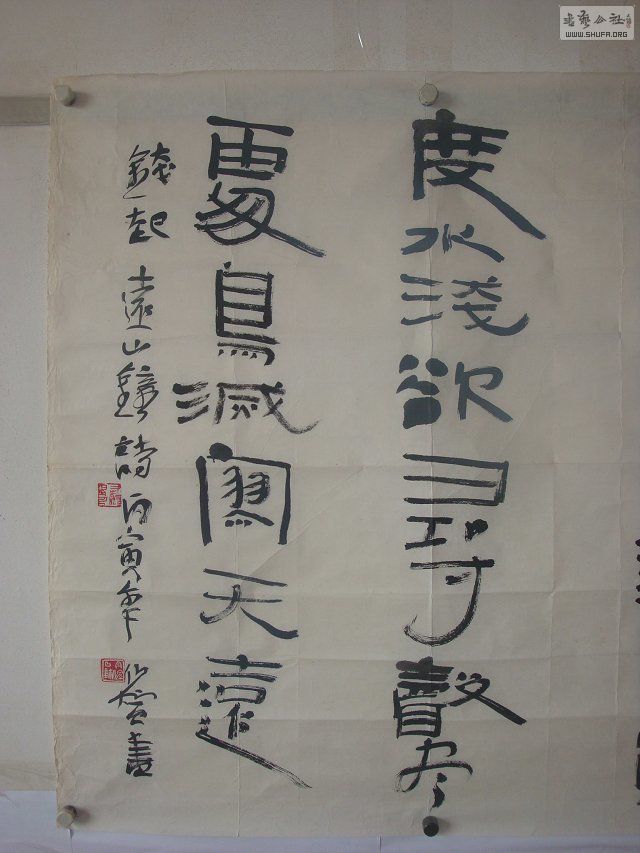 書藝公社
WWW.SHUFA.ORG
度水淺欲尋聲尽
處鳥滅寥天遠
錢起遠山鐘詩丙寅年書